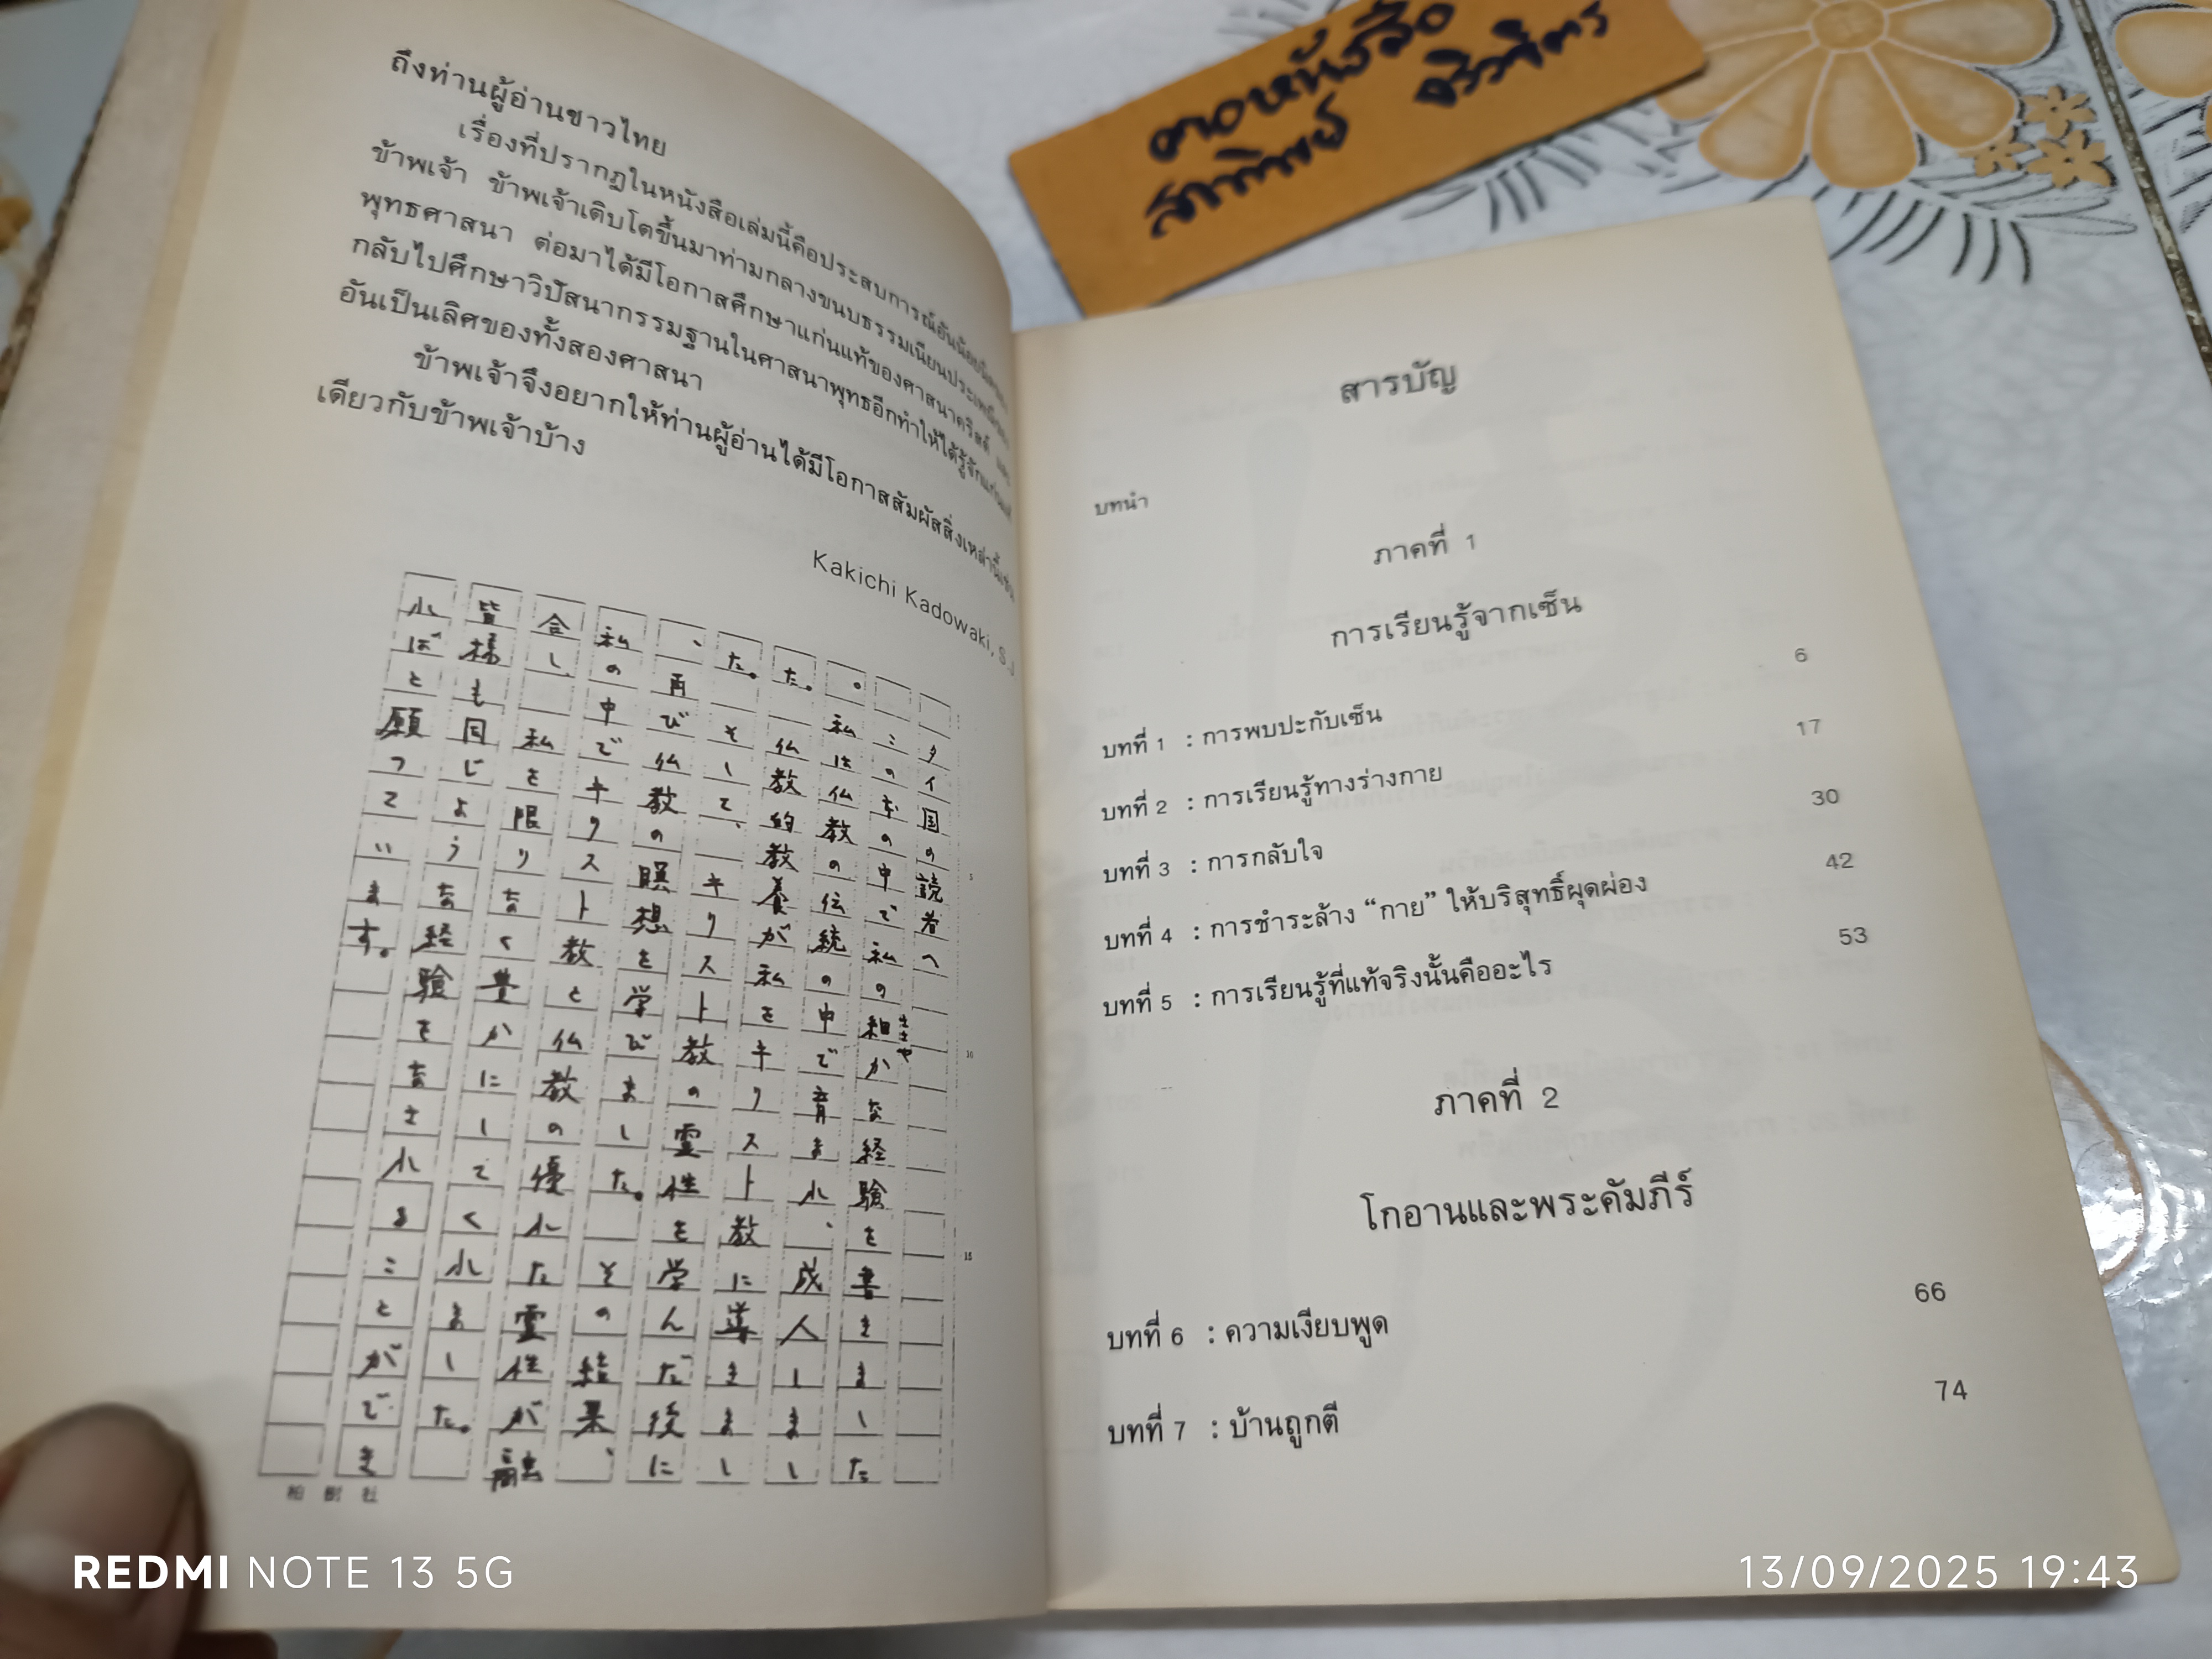 ถึงท่านผู้อ่านชาวไทย
เรื่องที่ปรากฏในหนังสือเล่มนี้คือประสบการณ์อันน้อยนิดของ
ข้าพเจ้า ข้าพเจ้าเติบโตขึ้นมาท่ามกลางขนบธรรมเนียมประเพณีของ
พุทธศาสนา ต่อมาได้มีโอกาสศึกษาแก่นแท้ของศาสนาคริสต์ และ
กลับไปศึกษาวิปัสนากรรมฐานในศาสนาพุทธอีกทำให้ได้รู้จักแก่นแท้
อันเป็นเลิศของทั้งสองศาสนา
ข้าพเจ้าจึงอยากให้ท่านผู้อ่านได้มีโอกาสสัมผัสสิ่งเหล่านี้เช่น
เดียวกับข้าพเจ้าบ้าง
Kakichi Kadowaki, S.J.
タイ国の読者へ
この本の中で私の細かな経験を書きました
ささや
。私は仏教の伝統の中で育まれ、成人しまし
た。仏教的教養が私をキリスト教に導きまし
た。そして、キリスト教の霊性を学んだ後に
、再び仏教の瞑想を学びました。その結果、
私の中でキリスト教と仏教の優れた霊性が融
合し、私を限りなく豊かにしてくれました。
皆様も同じような経験をなされることができ
ればと願っています。
5
10
15
柏樹社
คอหนังสือ
สาทิพย์ ชีวจิตร
สารบัญ
บทนำ
ภาคที่ 1
การเรียนรู้จากเซ็น
บทที่ 1 : การพบปะกับเซ็น 6
บทที่ 2 : การเรียนรู้ทางร่างกาย 17
บทที่ 3 : การกลับใจ 30
บทที่ 4 : การชำระล้าง “กาย” ให้บริสุทธิ์ผุดผ่อง 42
บทที่ 5 : การเรียนรู้ที่แท้จริงนั้นคืออะไร 53
ภาคที่ 2
โกอานและพระคัมภีร์
บทที่ 6 : ความเงียบพูด 66
บทที่ 7 : บ้านถูกตี 74
REDMI NOTE 13 5G
13/09/2025 19:43